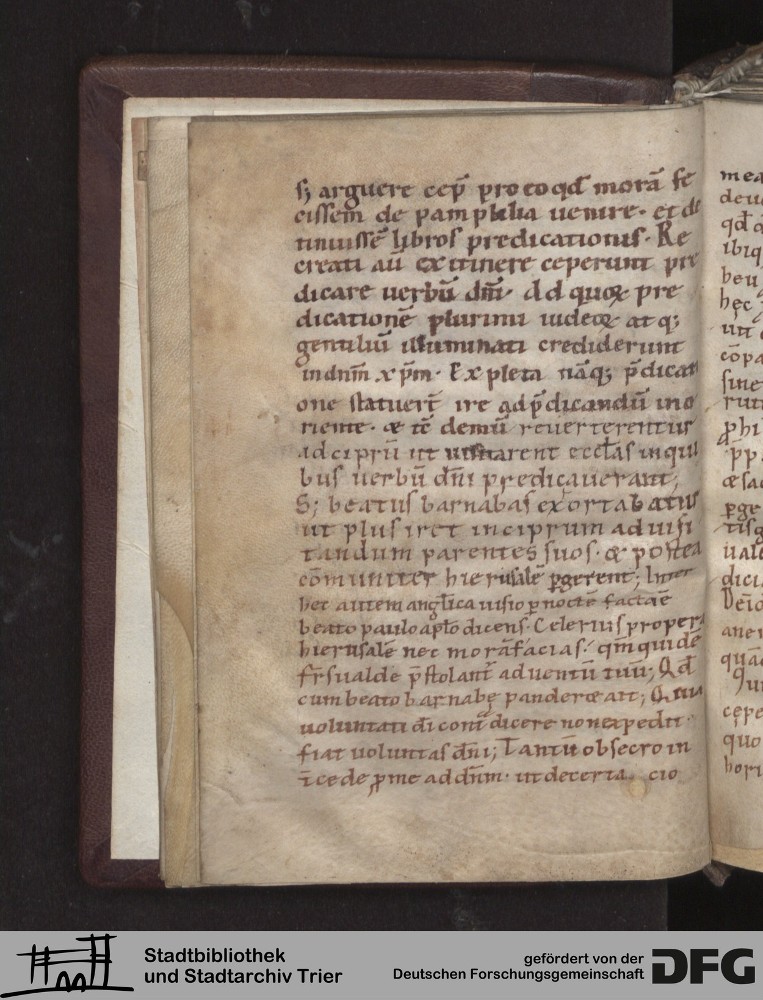 sꝫ arguere cep̄ pro eo qđ morā fe
cissem de pamphilia uenire· et de
tinuissē libros predicationis· Re
creati aū ex itinere ceperunt pre
dicare uerbū dn̄i· Ad quoꝝ pre
dicationē plurimi iudeoꝝ atqꝫ
gentiliū illuminati crediderunt
in dnm̄ xp̄m· Expleta nāqꝫ p̄dicati
one statuer̄t ire ad p̄dicandū in o
riente· & tc̄ demū reuerterentur
ad ciprū ut uisitarent eccl̄as in qui
bus uerbū dn̄i predicauerant;
Sꝫ beatus barnabas exortabatur
ut plus iret in ciprum ad uisi
tandum parentes suos· & postea
cōmuniter hierusalē ꝑgerent; Inter
hec autem angl̄ica uisio ꝑ noctē facta ē
beato paulo apl̄o dicens· Celerius propera
hierusalē nec morā facias· qm̄ quidē
fr̄s ualde p̄stolant̄ aduentū tuū; Qđ
cum beato barnabę panderet ait; Qui
uoluntati dī cont̄dicere non expedit·
fiat uoluntas dn̄i; Tantū obsecro in
t̄cede ꝑ me ad dn̄m· ut decerta cio
mea
deu
ibiq
beu
hęc
cōpa
sine
phi
ual
dici
Dei
aner
quā
cępe
quo
bori
Stadtbibliothek
und Stadtarchiv Trier
gefördert von der
Deutschen Forschungsgemeinschaft
DFG